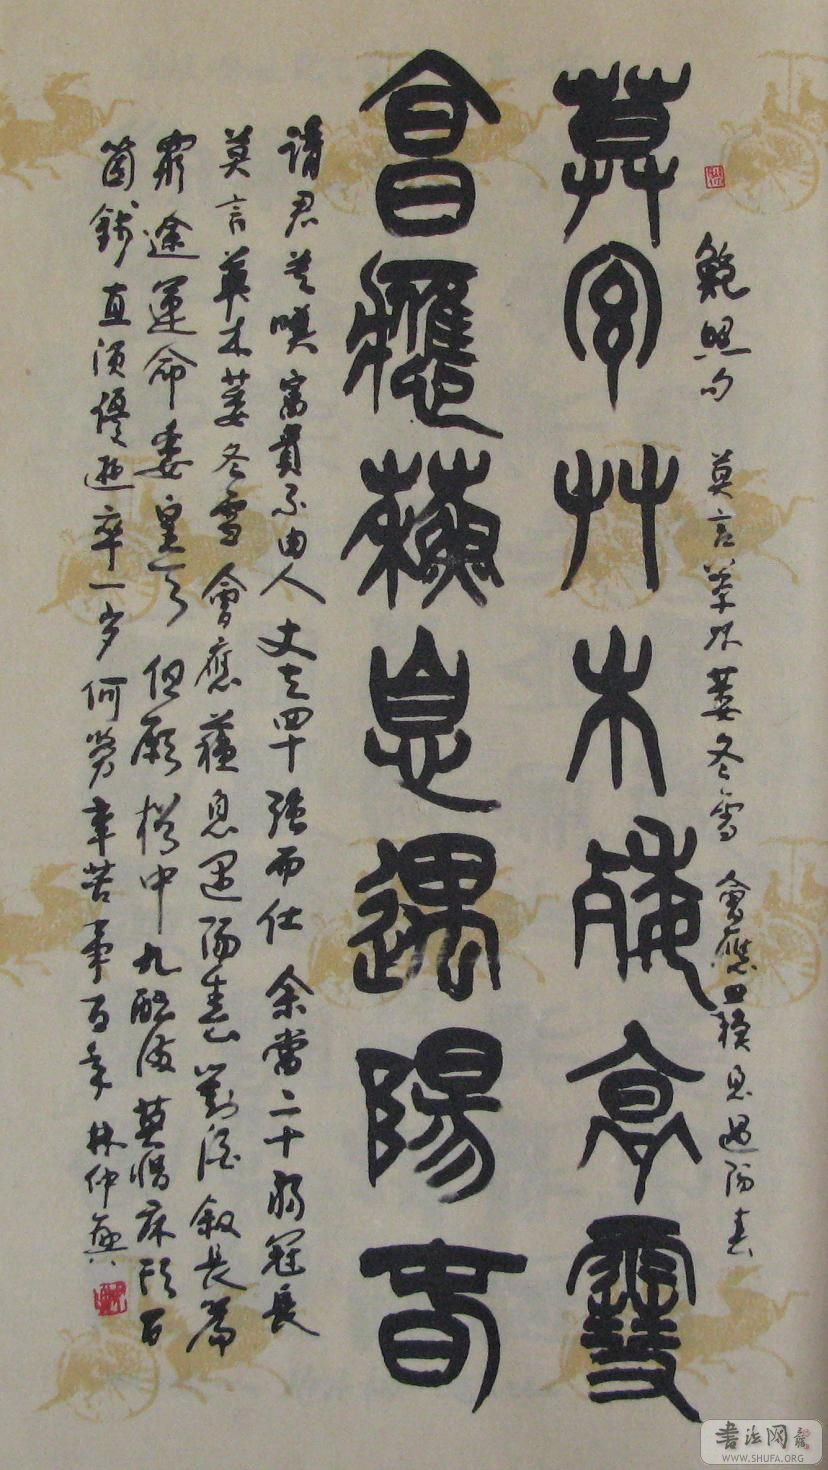 鮑照句 莫言草木萎冬雪 會應蘇息遇陽春
莫言草木萎冬雪
會應蘇息遇陽春
諸君莫嘆富貴不由人丈夫四十強而仕余當二十弱冠辰
莫言草木萎冬雪會應蘇息遇陽春對酒敘長篇
窮途運命委皇天但願樽中九醞滿莫惜床頭百
箇錢直須優遊卒一歲何勞辛苦事百年 林仲興
書法网
WWW.SHUFA.ORG